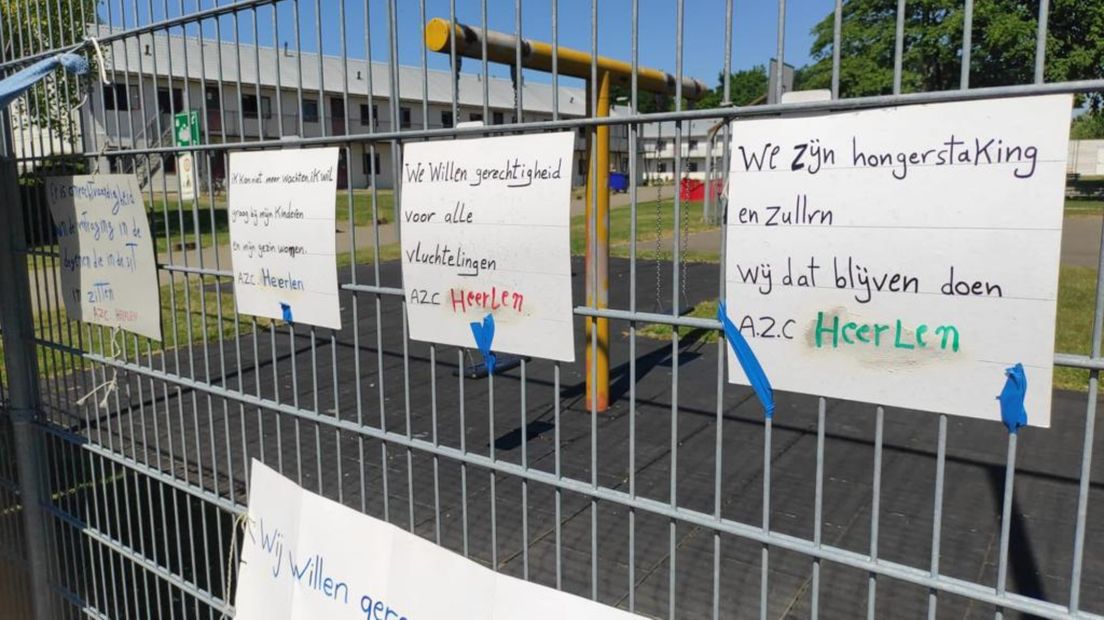 onrechtvaardigheid
in de
degenen die in de
in zitten
A.Z.C. HEERLEN
ik kan niet meer wachten, ik wil
graag bij mijn Kinderen
en mijn gezin wonen.
AZC. Heerlen
We Willen gerechtigheid
voor alle
vluchtelingen
AZC Heerlen
We zijn hongerstaking
en zullrn
wij dat blijven doen
A.Z.C Heerlen
Wij willen